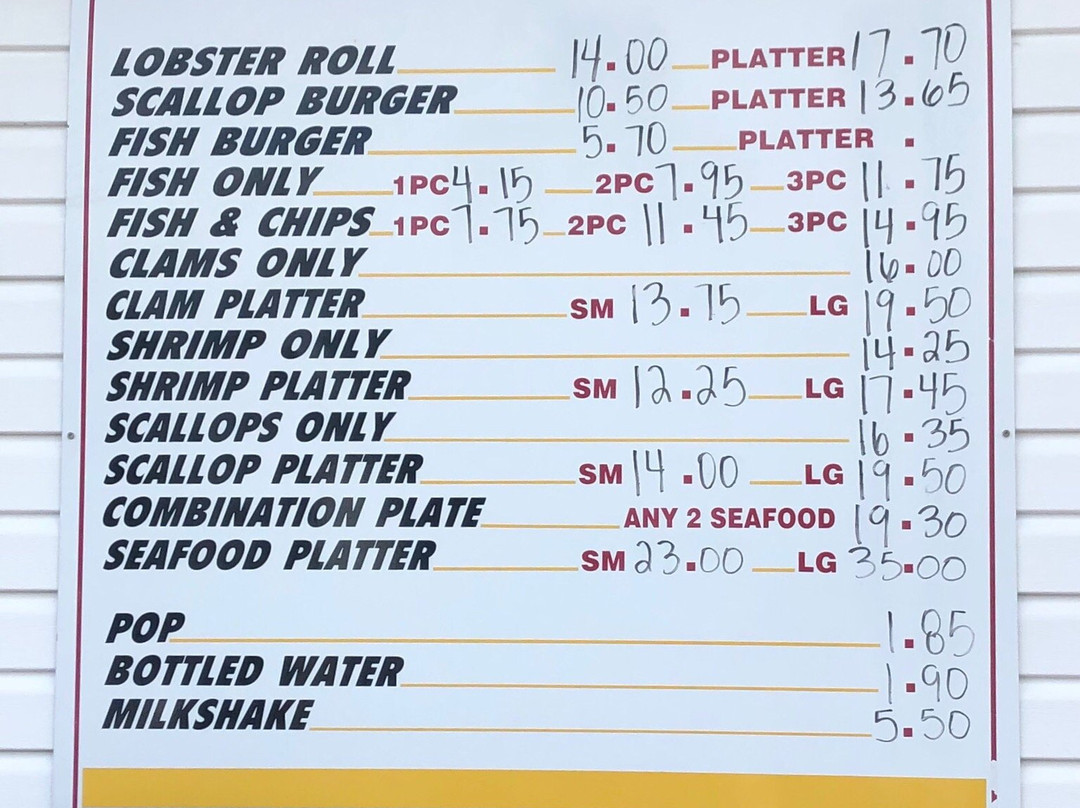 LOBSTER ROLL 14.00 PLATTER 17.70
SCALLOP BURGER 10.50 PLATTER 13.65
FISH BURGER 5.70 PLATTER .
FISH ONLY 1PC 4.15 2PC 7.95 3PC 11.75
FISH & CHIPS 1PC 7.75 2PC 11.45 3PC 14.95
CLAMS ONLY 16.00
CLAM PLATTER SM 13.75 LG 19.50
SHRIMP ONLY 14.25
SHRIMP PLATTER SM 12.25 LG 17.45
SCALLOPS ONLY 16.35
SCALLOP PLATTER SM 14.00 LG 19.50
COMBINATION PLATE ANY 2 SEAFOOD 19.30
SEAFOOD PLATTER SM 23.00 LG 35.00
POP 1.85
BOTTLED WATER 1.90
MILKSHAKE 5.50